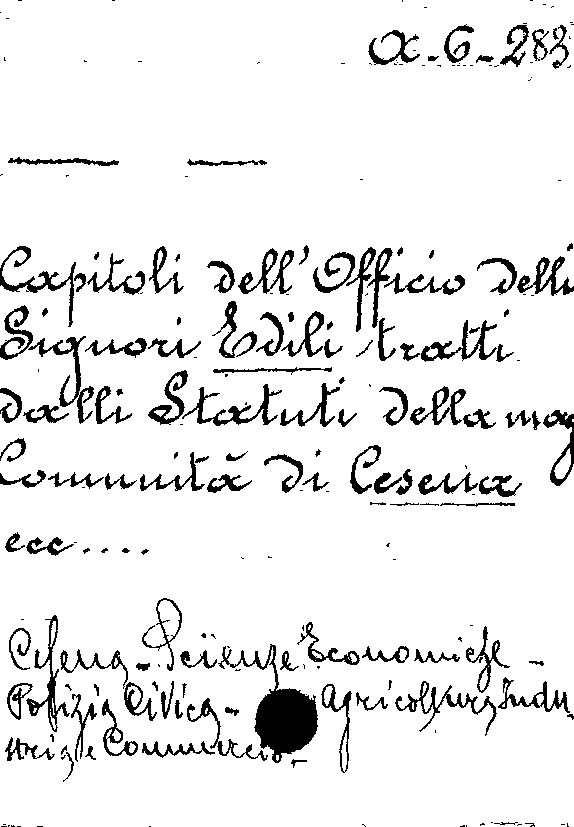 α-6-283
Capitoli dell'Officio delli
Signori Edili tratti
dalli Statuti della mag
Comunità di Cesena
ecc....
Cesena - Scienze Economiche -
Polizia Civica - Agricoltura Indu
stria e Commercio -